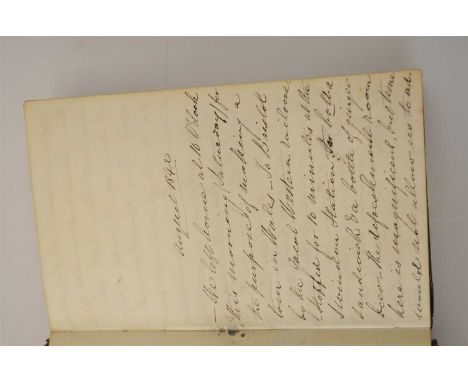 August 1842
— We left home at 10 O'Clock
this morning (Saturday) for
the purpose of making a
tour in Wales — To Bristol
by the Great Western railroad.
Stopped for 10 minutes at the
Swindon Station to
sandwich & a bottle of ginger
beer — the refreshment room
here is magnificent, but time
would not allow us to